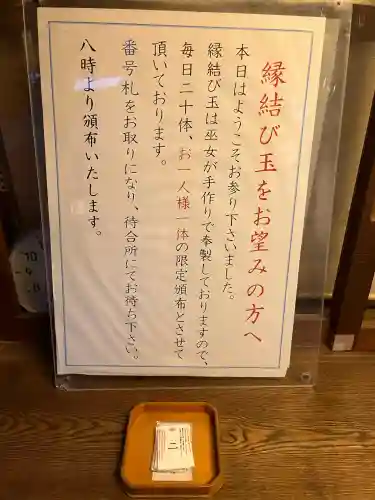 縁結び玉をお望みの方へ
本日はようこそお参り下さいました。
縁結び玉は巫女が手作りで奉製しておりますので、
毎日二十体、お一人様一体の限定頒布とさせて
頂いております。
番号札をお取りになり、待合所にてお待ち下さい。
八時より頒布いたします。
10
9
8
二